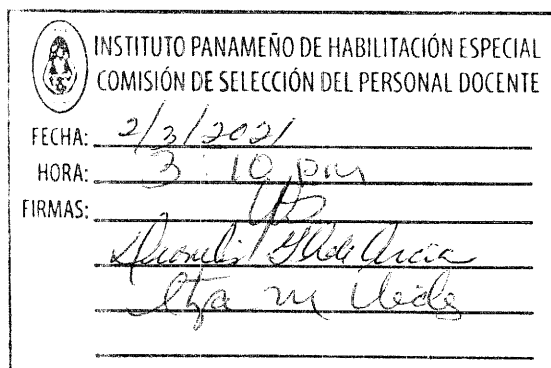 INSTITUTO PANAMEÑO DE HABILITACIÓN ESPECIAL
COMISIÓN DE SELECCIÓN DEL PERSONAL DOCENTE
FECHA: 2/3/2021
HORA: 3:10 pm
FIRMAS:
Itza M